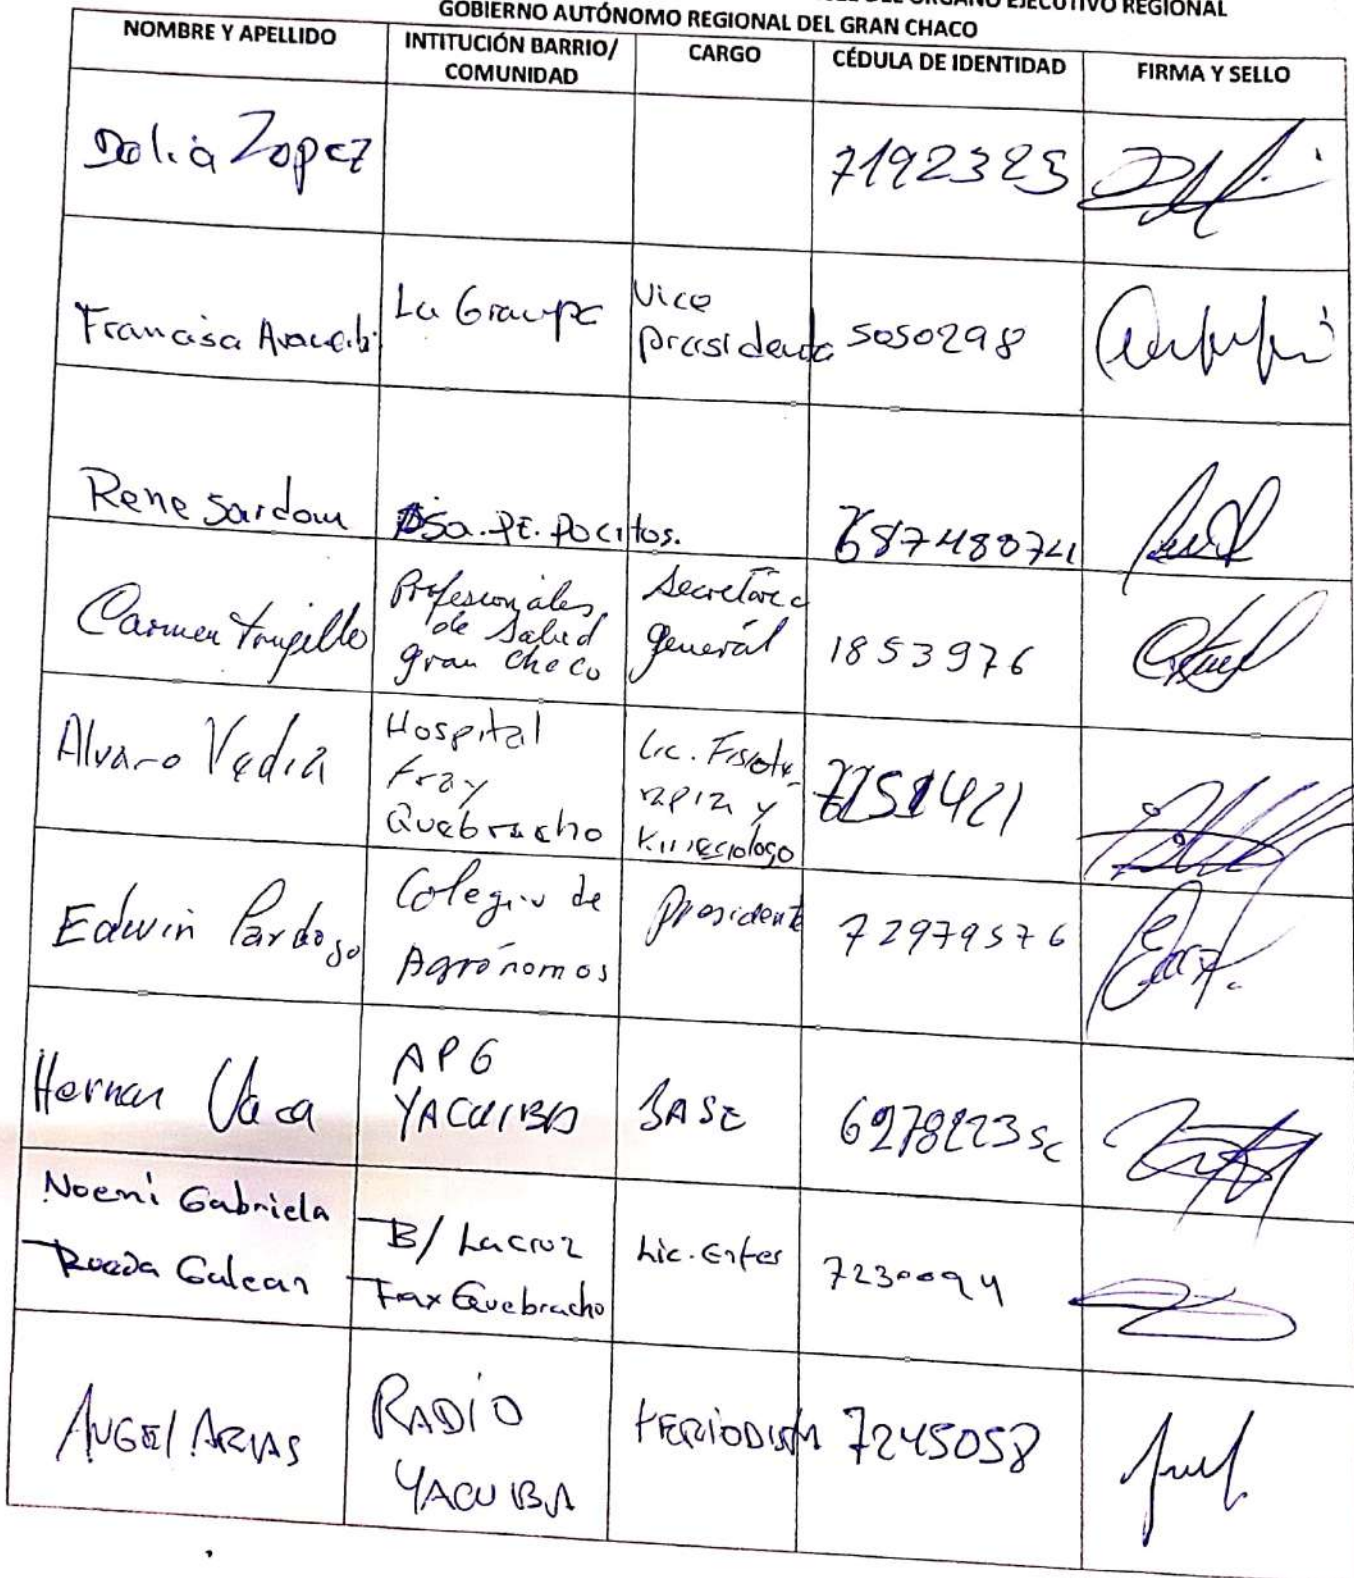 DEL ÓRGANO EJECUTIVO REGIONAL
GOBIERNO AUTÓNOMO REGIONAL DEL GRAN CHACO
NOMBRE Y APELLIDO
INTITUCIÓN BARRIO/
COMUNIDAD
CARGO
CÉDULA DE IDENTIDAD
FIRMA Y SELLO
Dalia Zopez
7192323
Francisa
La Grampa
Vice
presidenta
5050298
Rene Sardou
PE. Pocitos.
Carmen Trugillo
Profesionales
de Salud
gran Chaco
Secretaria
General
1853976
Alvaro Vedia
Hospital
Fray
Quebracho
Lic. Fisiote-
rapia y
Kinesiologo
Edwin Pardoso
Colegio de
Agrónomos
presidente
72979576
Hernan Vaca
APG
YACUIBA
BASE
Noemi Gabriela
Rueda Galean
B/ Lacruz
Fax Quebracho
Lic. Enfer
7230094
ANGEl ARIAS
RADIO
YACUIBA
PERIODISTA
7245058